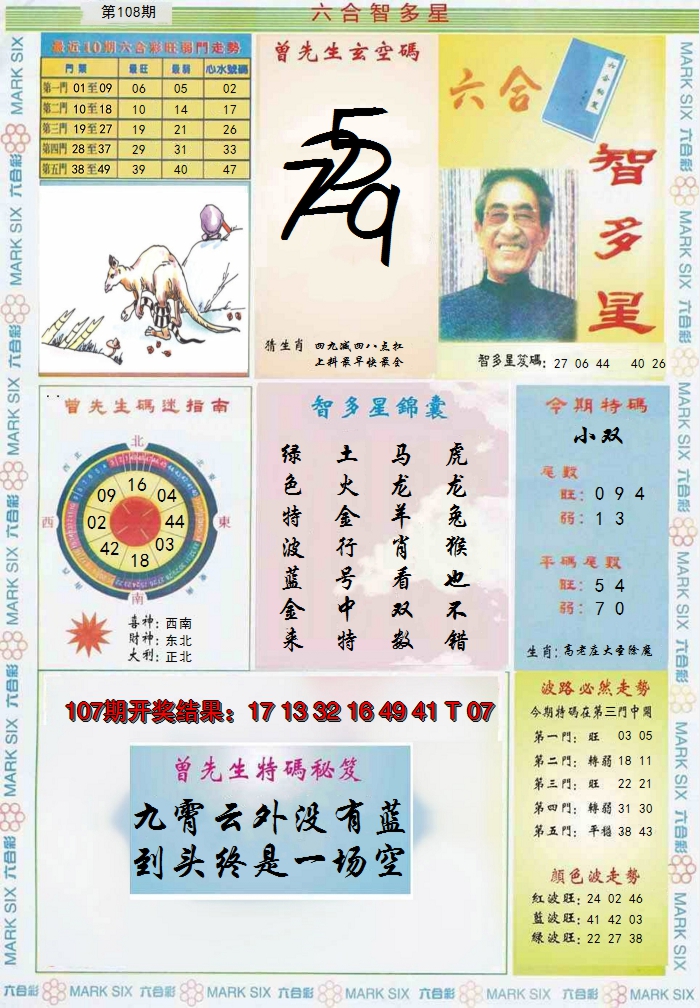 第108期
六合智多星
最近10期六合彩旺弱門走勢
門類 最旺 最弱 心水號碼
第一門 01至09 06 05 02
第二門 10至18 10 14 17
第三門 19至27 19 21 26
第四門 28至37 29 31 33
第五門 38至49 39 40 47
曾先生玄空碼
猜生肖 四九减四八点扛
上料最早快最全
六合
智多星
智多星笈碼: 27 06 44 40 26
曾先生碼迷指南
北
西 東
南
16
09 04
02 44
42 03
18
喜神: 西南
财神: 东北
大利: 正北
智多星錦囊
绿色特波蓝金来
土火金行号中特
马龙羊肖看双数
虎龙兔猴也不错
今期特碼
小双
尾數
旺: 0 9 4
弱: 1 3
平碼尾數
旺: 5 4
弱: 7 0
生肖: 高老庄大圣除魔
107期开奖结果: 17 13 32 16 49 41 T 07
曾先生特碼秘笈
九霄云外没有蓝
到头终是一场空
波路必然走勢
今期特碼在第三門中開
第一門: 旺 03 05
第二門: 轉弱 18 11
第三門: 旺 22 21
第四門: 轉弱 31 30
第五門: 平穩 38 43
顏色波走勢
紅波旺: 24 02 46
藍波旺: 41 42 03
綠波旺: 22 27 38
六合彩 MARK SIX 六合彩 MARK SIX 六合彩 MARK SIX 六合彩 MARK SIX 六合彩 MARK SIX